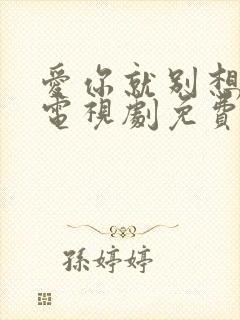 愛你就別想
電視劇免費
孫婷婷